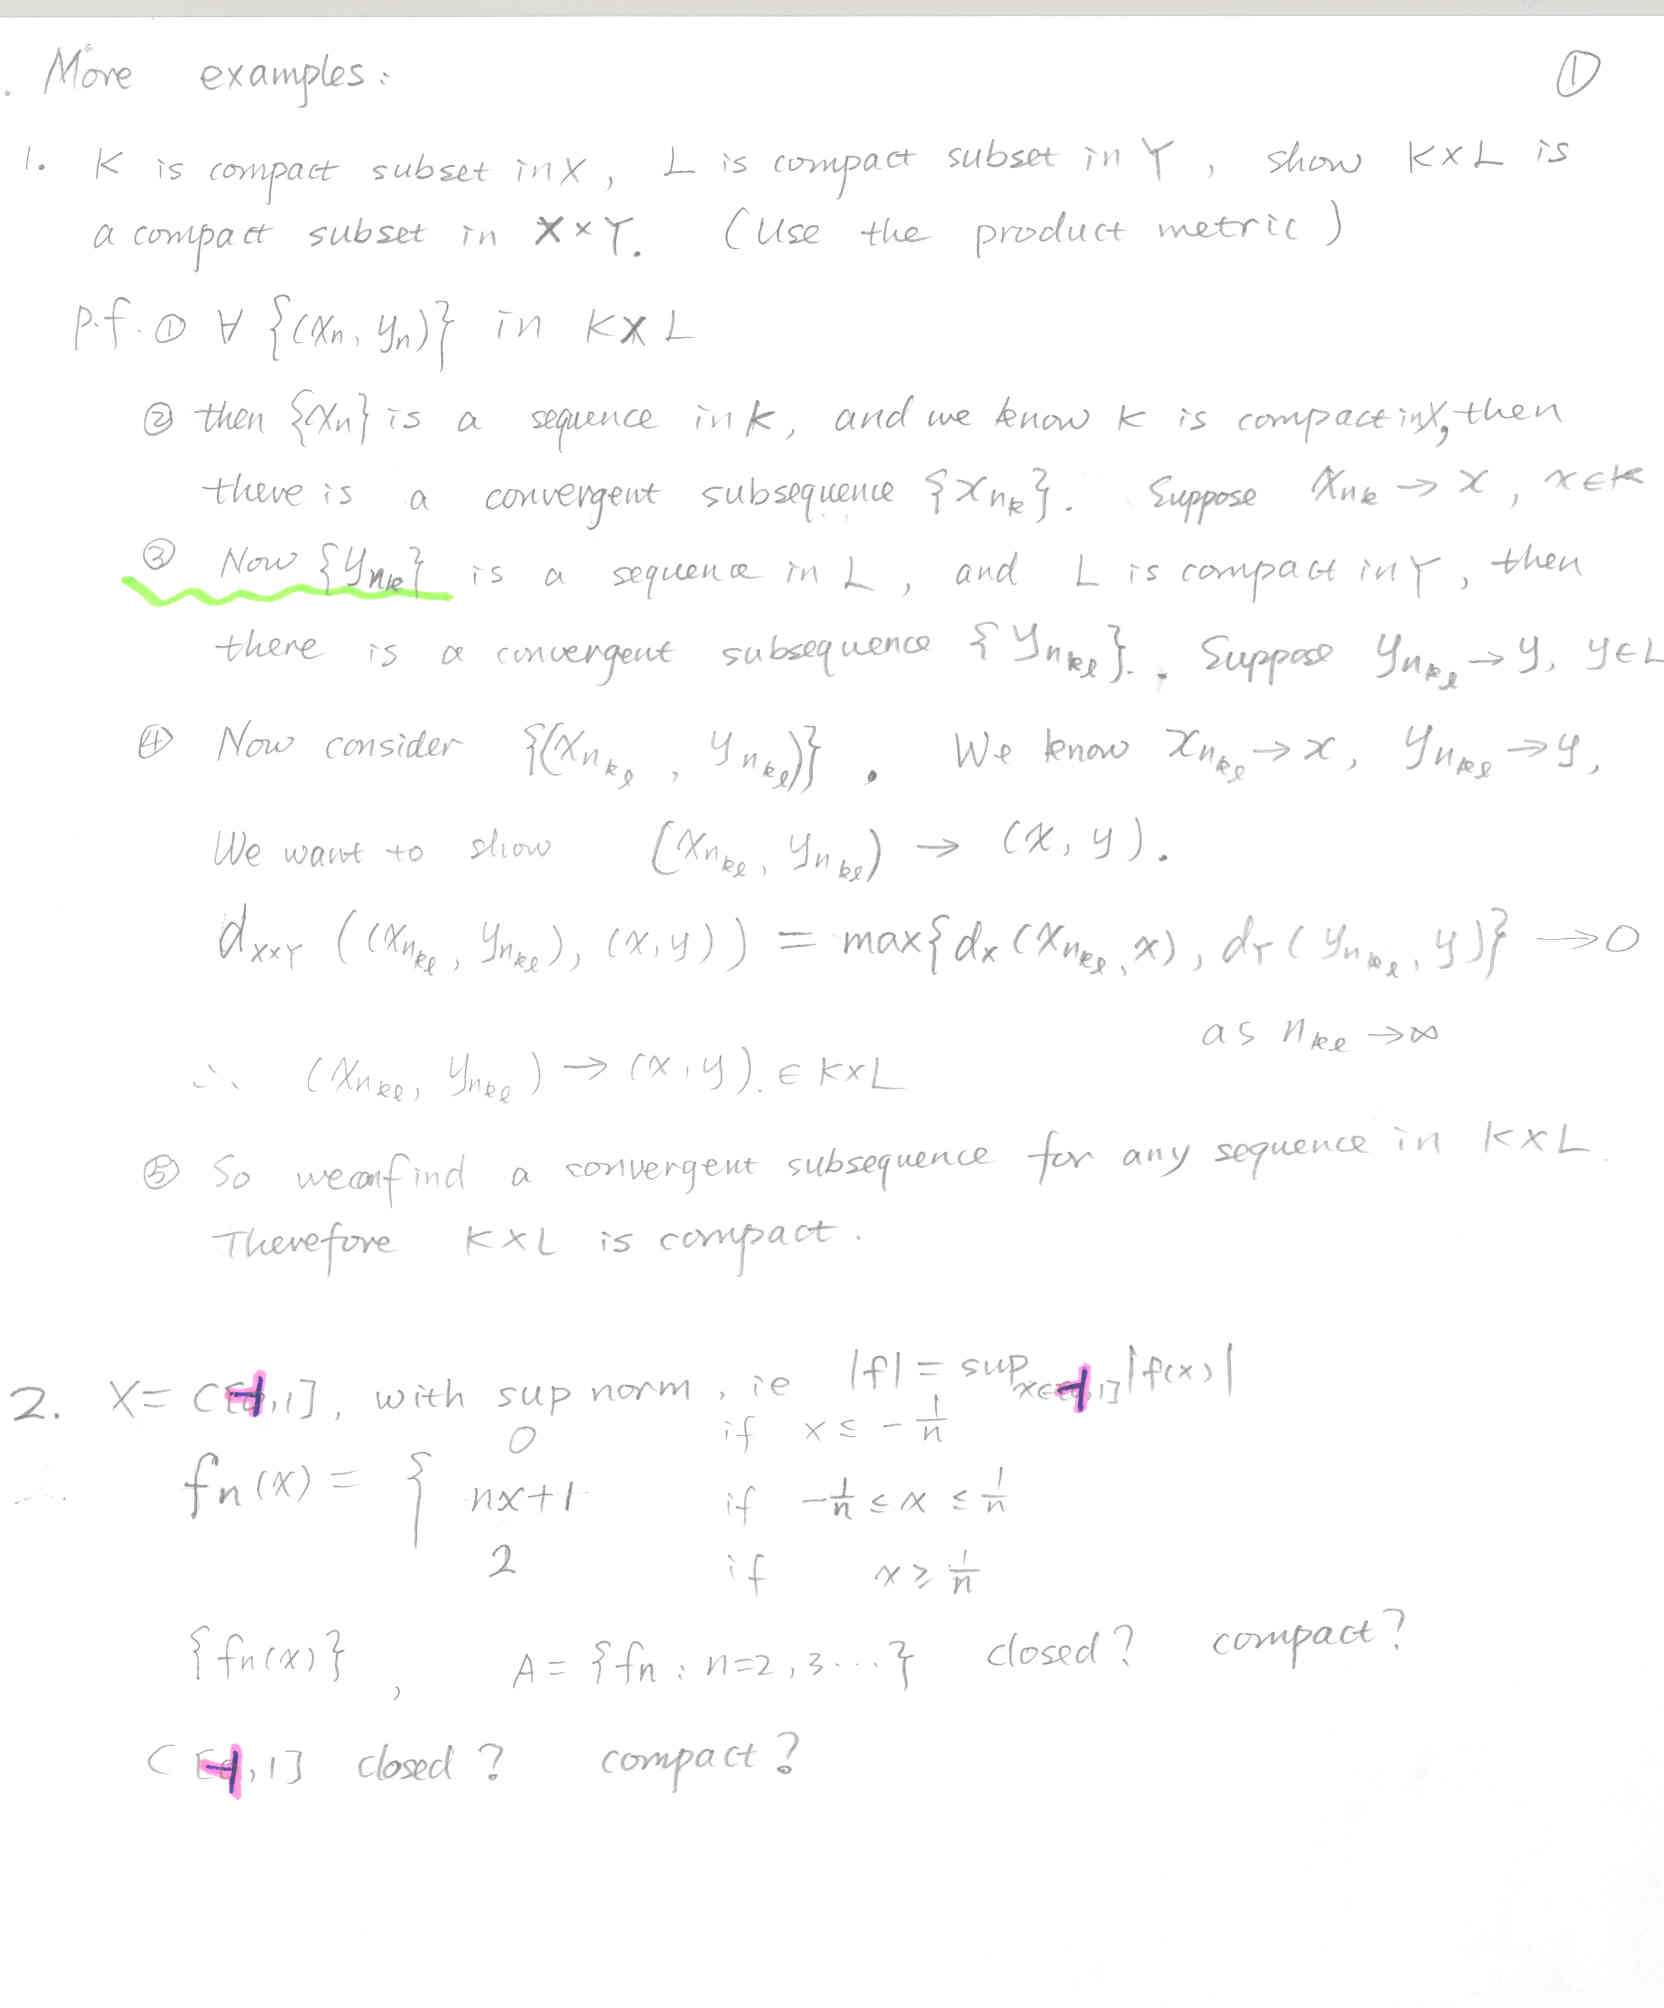 . More examples: ①
1. K is compact subset in X, L is compact subset in Y, show K×L is
a compact subset in X×Y. (Use the product metric)
p.f. ① ∀ {(xn, yn)} in K×L
② then {xn} is a sequence in K, and we know K is compact in X, then
there is a convergent subsequence {x_{n_k}}. Suppose x_{n_k} → x, x∈K
③ Now {y_{n_k}} is a sequence in L, and L is compact in Y, then
there is a convergent subsequence {y_{n_{k_l}}}. Suppose y_{n_{k_l}} → y, y∈L
④ Now consider {(x_{n_{k_l}}, y_{n_{k_l}})}. We know x_{n_{k_l}} → x, y_{n_{k_l}} → y,
We want to show (x_{n_{k_l}}, y_{n_{k_l}}) → (x, y).
d_{X×Y} ((x_{n_{k_l}}, y_{n_{k_l}}), (x, y)) = max{d_X (x_{n_{k_l}}, x), d_Y (y_{n_{k_l}}, y)} → 0
as n_{k_l} → ∞
∴ (x_{n_{k_l}}, y_{n_{k_l}}) → (x, y). ∈ K×L
⑤ So we can find a convergent subsequence for any sequence in K×L.
Therefore K×L is compact.
2. X = C[-1,1], with sup norm, ie |f| = sup_{x∈[-1,1]} |f(x)|
fn(x) = { 0 if x ≤ -1/n
nx+1 if -1/n ≤ x ≤ 1/n
2 if x ≥ 1/n
{fn(x)}, A = {fn : n=2, 3 ...} closed? compact?
C[-1,1] closed? compact?